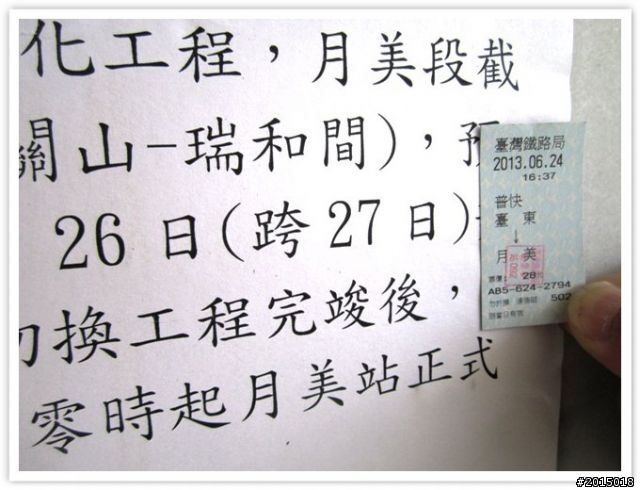 化工程，月美段截
關山-瑞和間)，預
26日(跨27日)
切換工程完竣後，
零時起月美站正式
臺灣鐵路局
2013.06.24
16:37
普快
臺東
↓
月美
票價: 28元
AB5-624-2794
502
限當日有效
#2015018